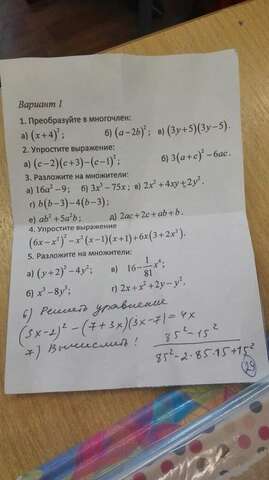 Вариант 1
1. Преобразуйте в многочлен:
а) (x+4)²; б) (a−2b)²; в) (3y+5)(3y−5).
2. Упростите выражение:
а) (c−2)(c+3)−(c−1)²; б) 3(a+c)²−6ac.
3. Разложите на множители:
а) 16a²−9; б) 3x³−75x; в) 2x²+4xy+2y².
г) b(b−3)−4(b−3);
е) ab²+5a²b; д) 2ac+2c+ab+b.
4. Упростите выражение
(6x−x²)²−x²(x−1)(x+1)+6x(3+2x²).
5. Разложите на множители:
а) (y+2)²−4y²; в) 16−1/81 x⁴;
б) x³−8y³; г) 2x+x²+2y−y².
6) Решить уравнение
(3x−2)²−(7+3x)(3x−7)=4x
7) Вычислить! 85²−15²
85²−2·85·15+15²
29